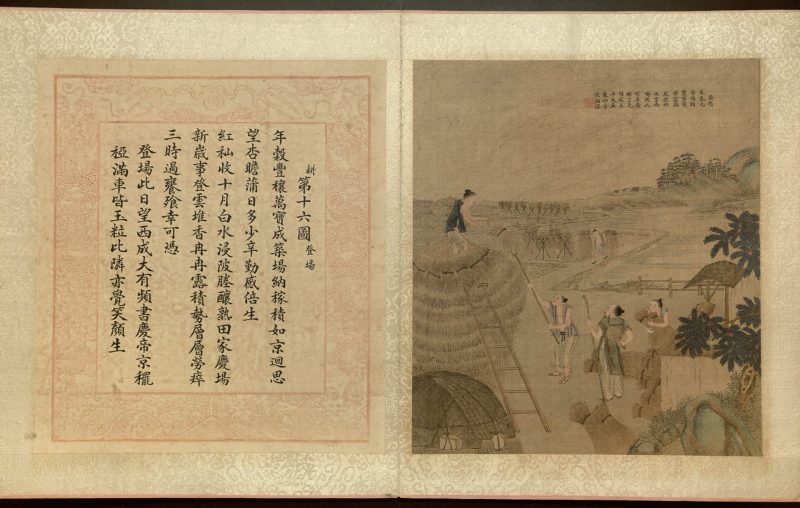 耕第十六圖登場
年穀豐穰萬寶成築場納稼積如京迴思
望杏瞻蒲日多少辛勤感倍生
紅秈收十月白水浸陂塍釀熟田家慶場
新歲事登雲堆香冉冉露積勢層層勞瘁
三時過饔飧幸可憑
登場此日望西成大有頻書慶帝京穲
稏滿車皆玉粒比隣亦覺笑顏生